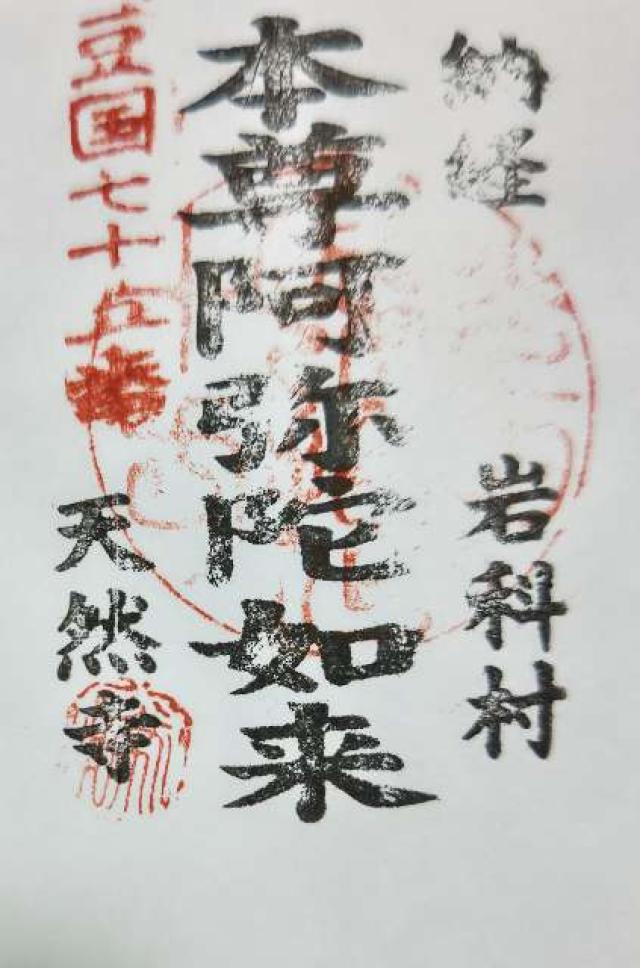 納経 岩科村
本尊阿弥陀如来
豆国七十五番
天然寺